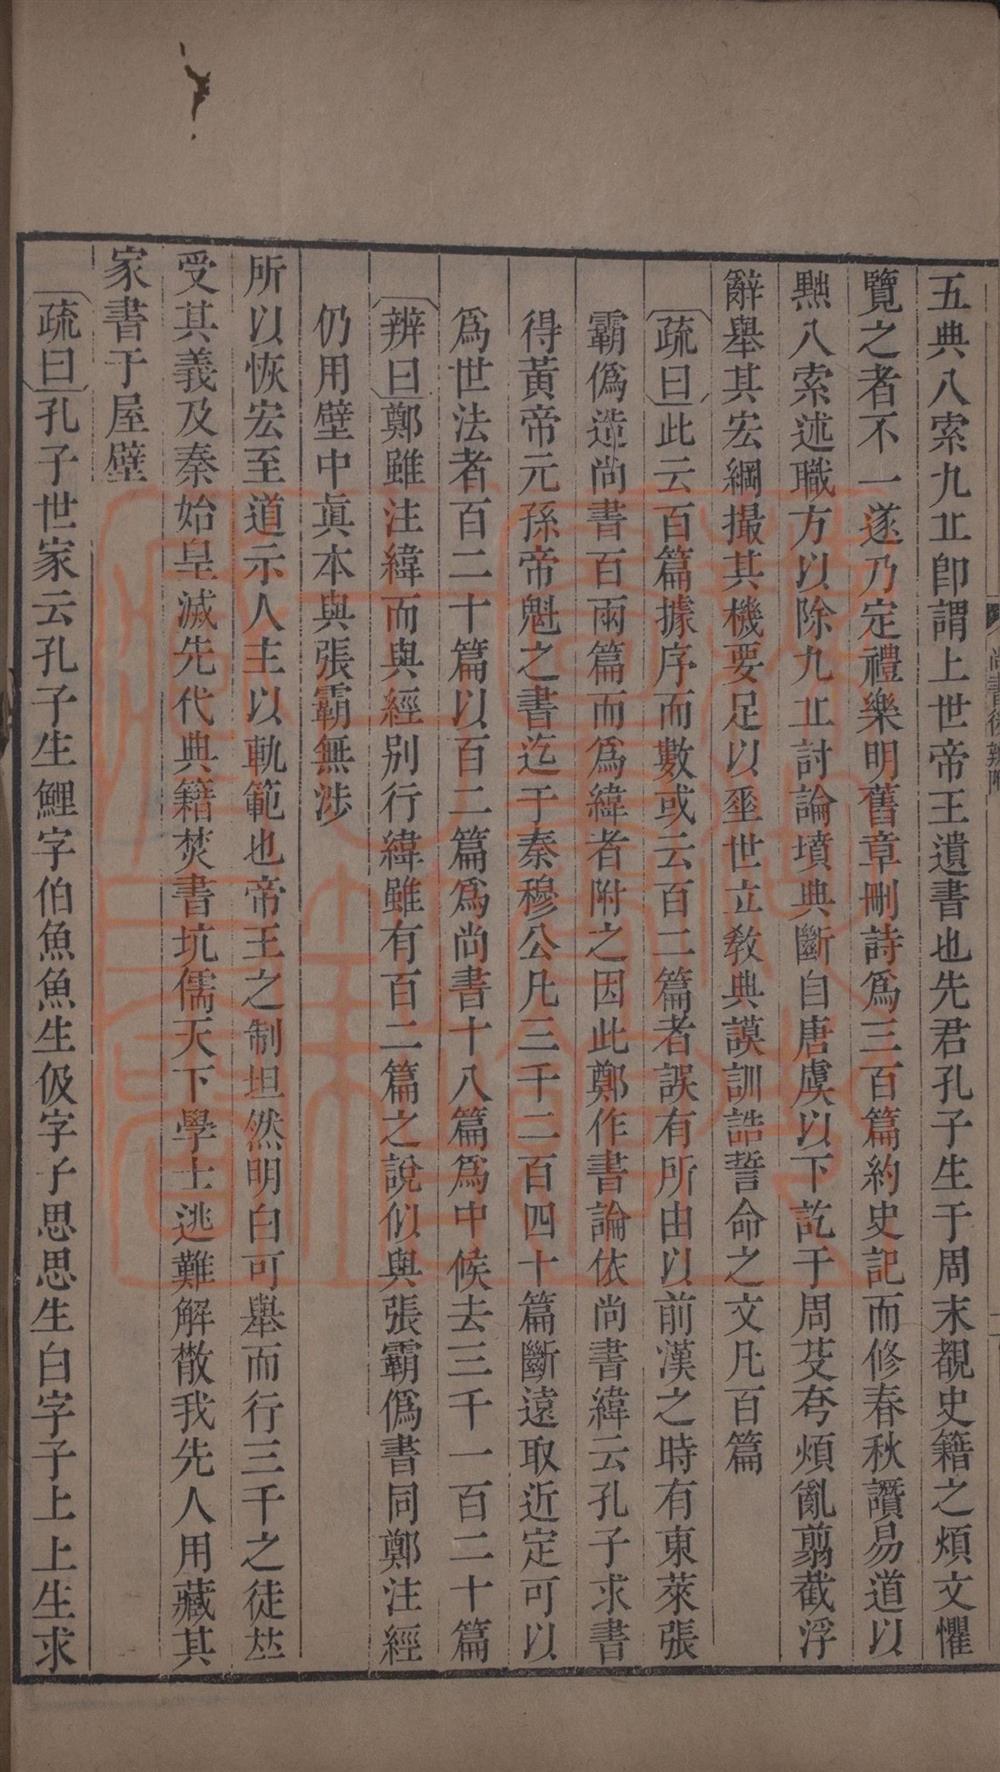 五典八索九丠即謂上世帝王遺書也先君孔子生于周末覩史籍之煩文懼
覽之者不一遂乃定禮樂明舊章刪詩爲三百篇約史記而修春秋讚易道以
黜八索述職方以除九丠討論墳典斷自唐虞以下訖于周芟夸煩亂翦截浮
辭舉其宏綱撮其機要足以垂世立教典謨訓誥誓命之文凡百篇
疏曰此云百篇據序而數或云百二篇者誤有所由以前漢之時有東萊張
霸僞造尚書百兩篇而爲緯者附之因此鄭作書論依尚書緯云孔子求書
得黃帝元孫帝魁之書迄于秦穆公凡三千二百四十篇斷遠取近定可以
爲世法者百二十篇以百二篇爲尚書十八篇爲中候去三千一百二十篇
辨曰鄭雖注緯而與經別行緯雖有百二篇之說似與張霸僞書同鄭注經
仍用壁中眞本與張霸無涉
所以恢宏至道示人主以軌範也帝王之制坦然明白可舉而行三千之徒並
受其義及秦始皇滅先代典籍焚書坑儒天下學士逃難解散我先人用藏其
家書于屋壁
疏曰孔子世家云孔子生鯉字伯魚魚生伋字子思思生白字子上上生求
尚書後辨附